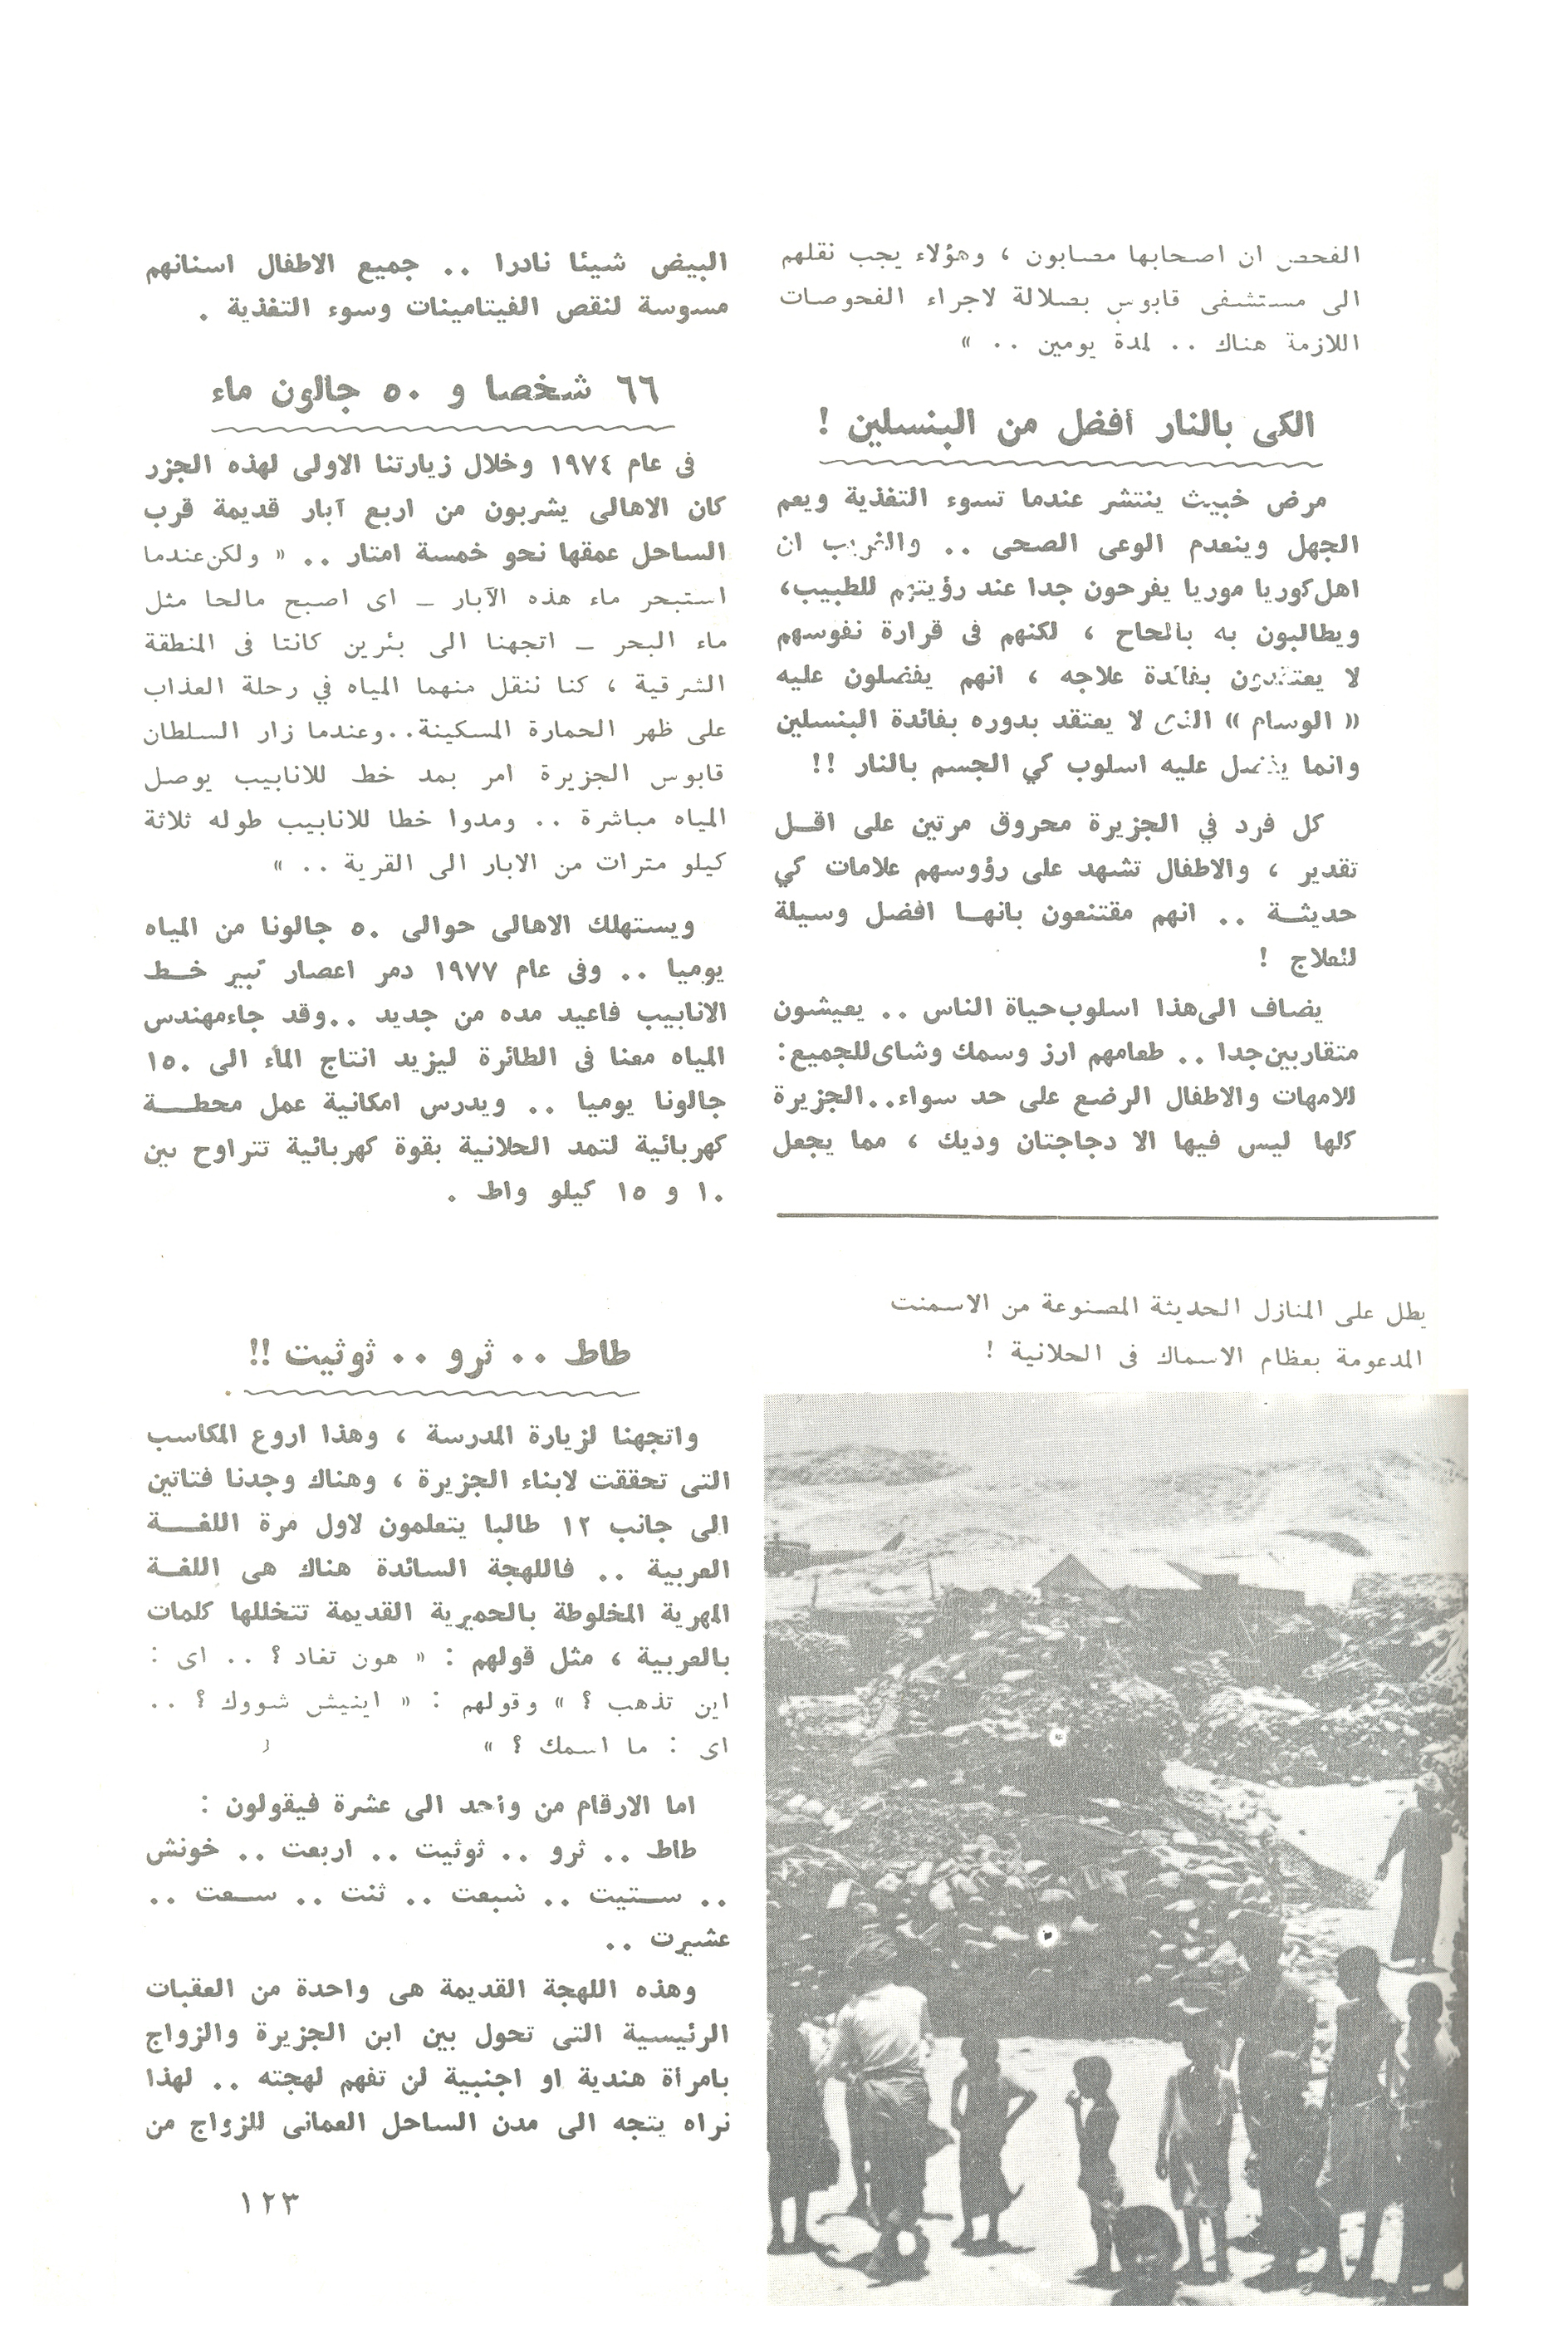 الفحص ان اصحابها مصابون ، وهؤلاء يجب نقلهم
الى مستشفى قابوس بصلالة لاجراء الفحوصات
اللازمة هناك .. لمدة يومين .. »
الكى بالنار أفضل من البنسلين !
مرض خبيث ينتشر عندما تسوء التغذية ويعم
الجهل وينعدم الوعى الصحى .. والغريب ان
اهل كوريا موريا يفرحون جدا عند رؤيتهم للطبيب،
ويطالبون به بالحاح ، لكنهم فى قرارة نفوسهم
لا يعتقدون بفائدة علاجه ، انهم يفضلون عليه
« الوسام » الذى لا يعتقد بدوره بفائدة البنسلين
وانما يفضل عليه اسلوب كي الجسم بالنار !!
كل فرد في الجزيرة محروق مرتين على اقـل
تقدير ، والاطفال تشهد على رؤوسهم علامات كي
حديثـة .. انهم مقتنعون بانهـا افضل وسيلة
للعلاج !
يضاف الى هذا اسلوب حياة الناس .. يعيشون
متقاربين جدا .. طعامهم ارز وسمك وشاى للجميع:
للامهات والاطفال الرضع على حد سواء..الجزيرة
كلها ليس فيها الا دجاجتان وديك ، مما يجعل
يطل على المنازل الحديثة المصنوعة من الاسمنت
المدعومة بعظام الاسماك فى الحلانية !
البيض شيئا نادرا .. جميع الاطفال اسنانهم
مسوسة لنقص الفيتامينات وسوء التغذية .
٦٦ شخصا و ٥٠ جالون ماء
فى عام ١٩٧٤ وخلال زيارتنا الاولى لهذه الجزر
كان الاهالى يشربون من اربع آبار قديمة قرب
الساحل عمقها نحو خمسة امتار .. « ولكن عندما
استبحر ماء هذه الآبار ــ اى اصبح مالحا مثل
ماء البحر ــ اتجهنا الى بئرين كانتا فى المنطقة
الشرقية ، كنا ننقل منهما المياه في رحلة العذاب
على ظهر الحمارة المسكينة..وعندما زار السلطان
قابوس الجزيرة امر بمد خط للانابيب يوصل
المياه مباشرة .. ومدوا خطا للانابيب طوله ثلاثة
كيلو مترات من الابار الى القرية .. »
ويستهلك الاهالى حوالى ٥٠ جالونا من المياه
يوميا .. وفى عام ١٩٧٧ دمر اعصار كبير خـط
الانابيب فاعيد مده من جديد ..وقد جاء مهندس
المياه معنا فى الطائرة ليزيد انتاج الماء الى ١٥٠
جالونا يوميا .. ويدرس امكانية عمل محطـــة
كهربائية لتمد الحلانية بقوة كهربائية تتراوح بين
١٠ و ١٥ كيلو واط .
طاط .. ثرو .. ثوثيت !!
واتجهنا لزيارة المدرسة ، وهذا اروع المكاسب
التى تحققت لابناء الجزيرة ، وهناك وجدنا فتاتين
الى جانب ١٢ طالبا يتعلمون لاول مرة اللغــة
العربية .. فاللهجة السائدة هناك هى اللغـة
المهرية المخلوطة بالحميرية القديمة تتخللها كلمات
بالعربية ، مثل قولهم : « هون تغاد ؟ .. اى :
اين تذهب ؟ » وقولهم : « اينيش شووك ؟ ..
اى : ما اسمك ؟ »
اما الارقام من واحد الى عشرة فيقولون :
طاط .. ثرو .. ثوثيت .. اربعت .. خونش
.. ســتيت .. شبعت .. ثنت .. ســعت ..
عشيرت ..
وهذه اللهجة القديمة هى واحدة من العقبات
الرئيسية التى تحول بين ابن الجزيرة والزواج
بامرأة هندية او اجنبية لن تفهم لهجته .. لهذا
نراه يتجه الى مدن الساحل العمانى للزواج من
١٢٣